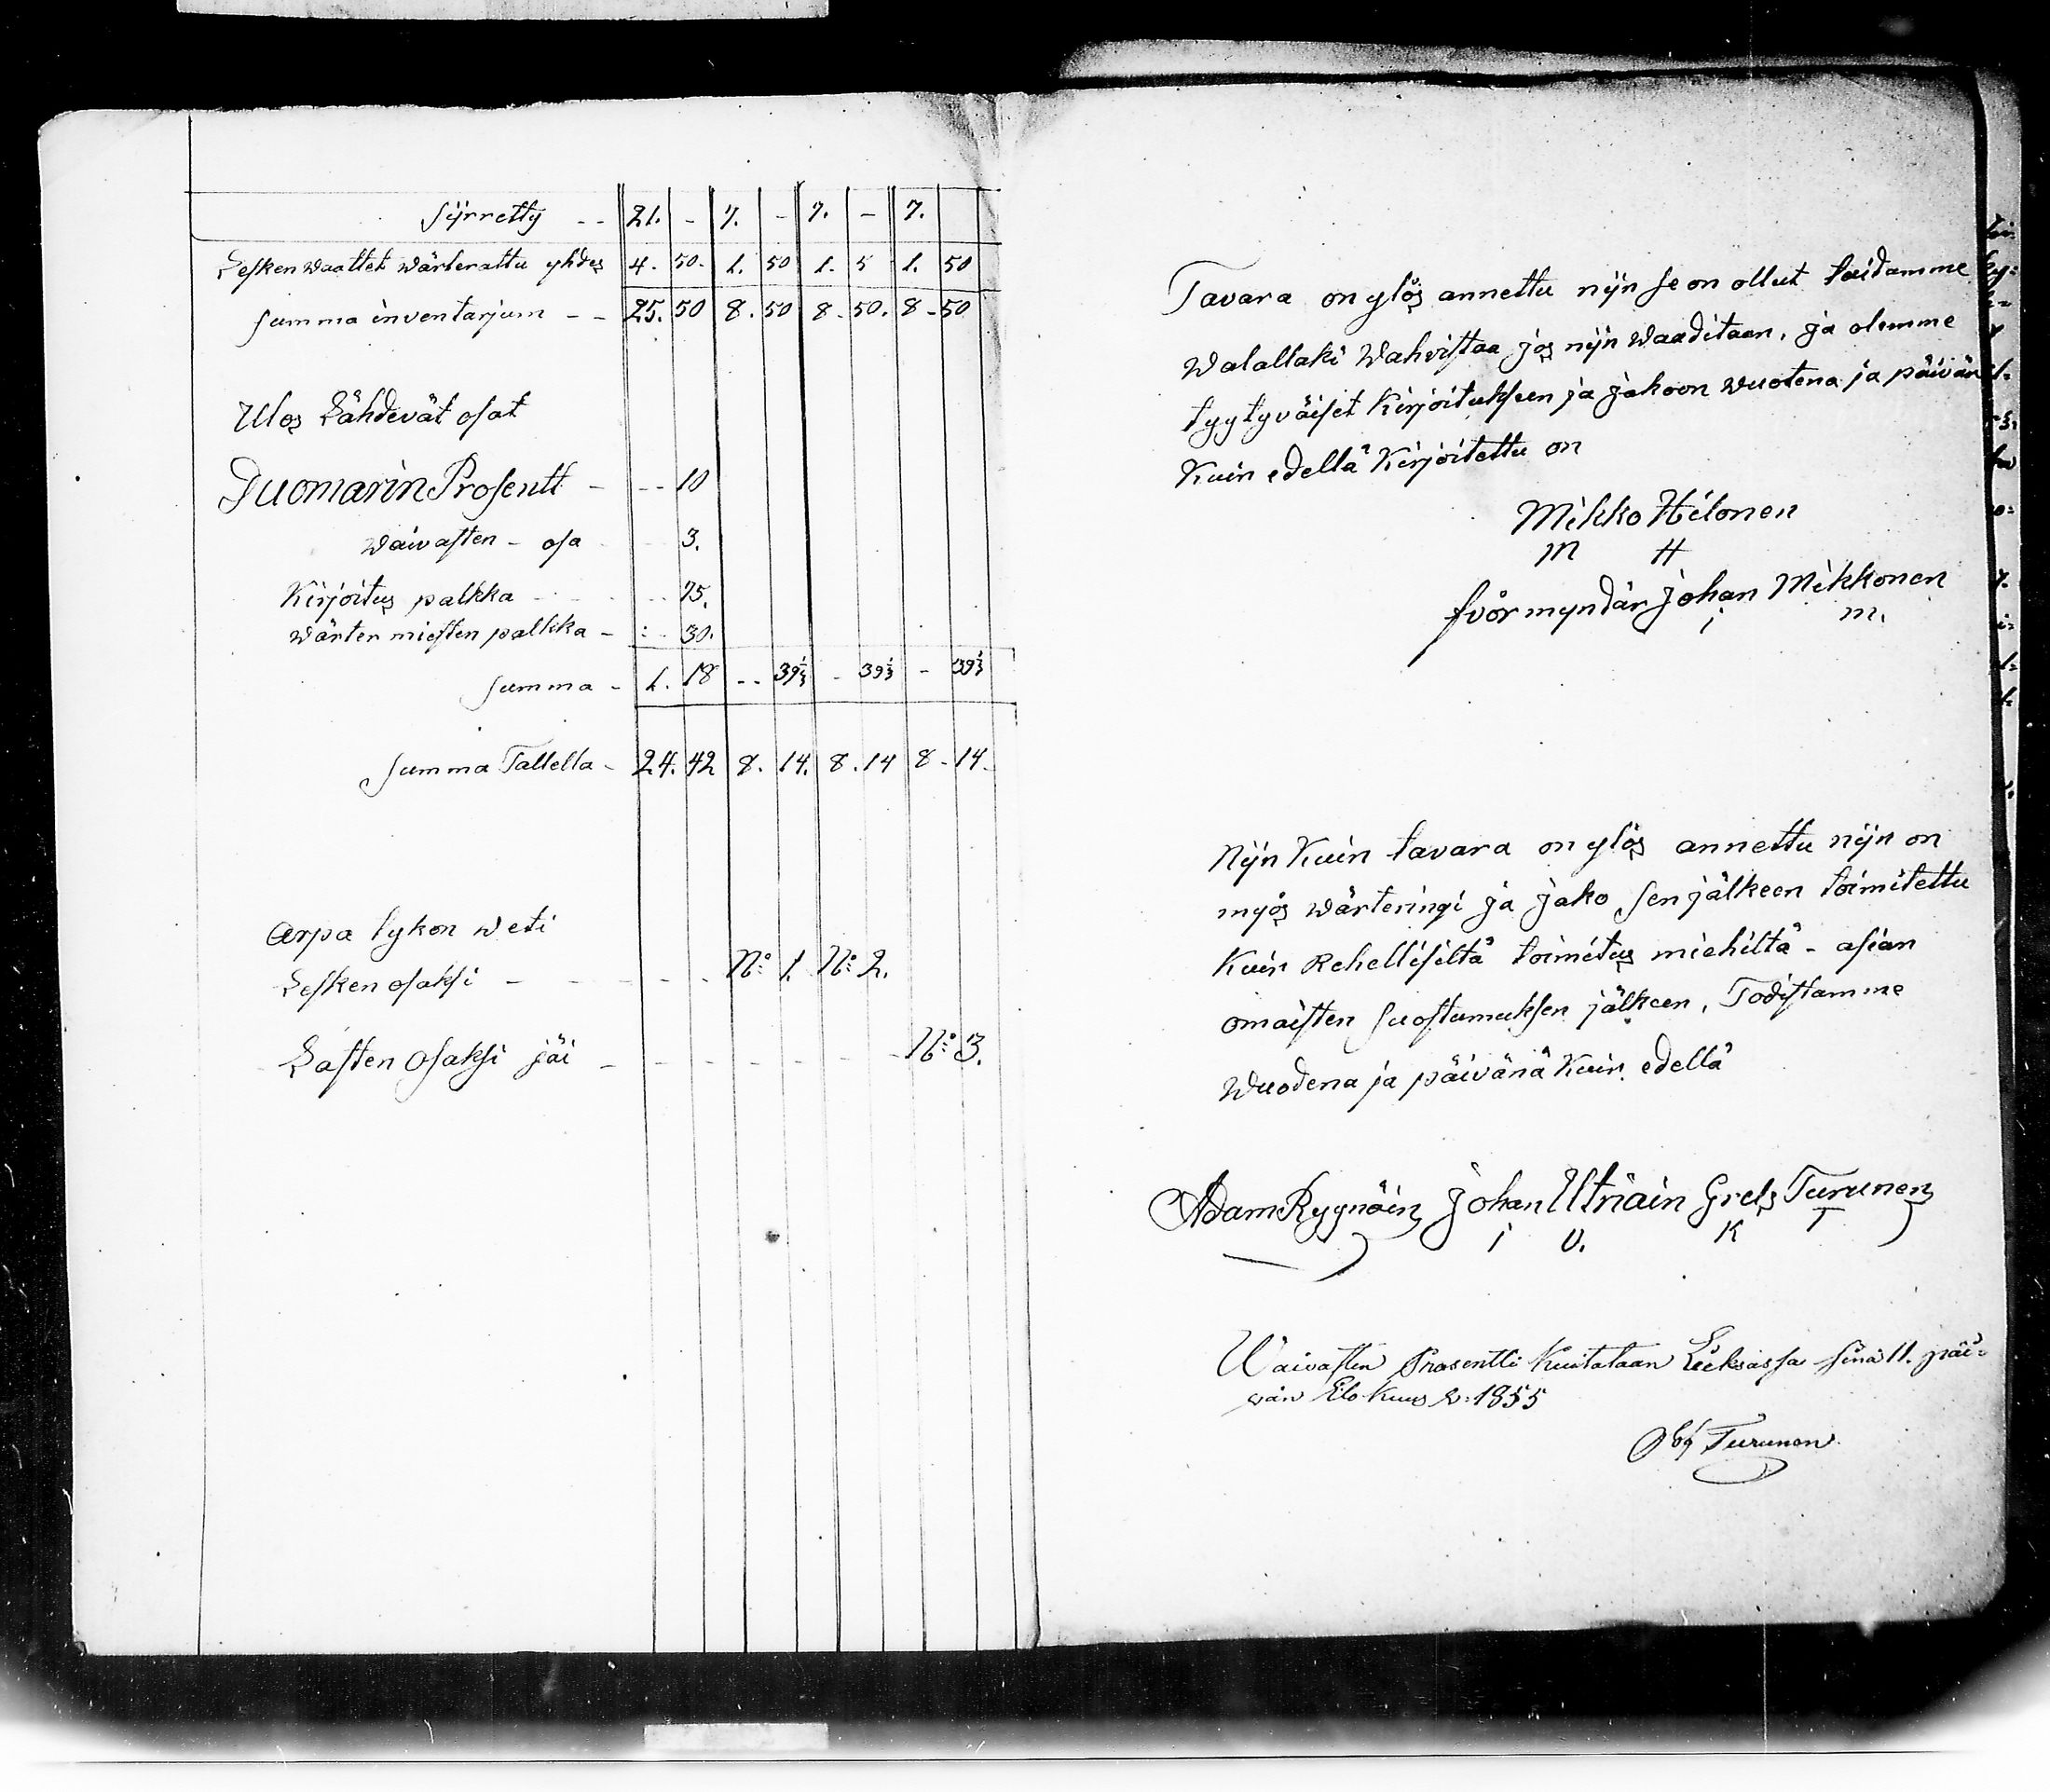 Sijrretty -- 21. - 7. - 7. - 7.
Lesken waattet wärterattu yhdes 4. 50. 1. 50 1. 5 1. 50
Summa inventarjum -- 25. 50 8. 50 8. 50. 8. 50
Ulos Lähdevät osat
Duomarin Prosentt - -- 10
waivasten - osa - 3.
Kirjoitus palkka - - 75.
wärter miesten palkka - 30.
Summa - 1. 18 -- 39⅓ - 39⅓ - 39⅓
Summa Tallella - 24. 42 8. 14. 8. 14 8. 14.
Arpa lykon weti
Lesken osaksi - - - - No: 1. No: 2.
Lasten osaksi jäi - - - - - - - No: 3.
Tavara on ylös annettu nijn se on ollut taidamme
walallaki wahvistaa jos nijn waaditaan, ja olemme
tyytyväiset Kirjoituksen ja jakoon wuotena ja päivän
Kuin edellä Kirjoitettu on
Mikko Hilonen
M H
fvörmyndär Johan Mikkonen
i m.
Nijn Kuin tavara on ylös annettu nijn on
myös wärteringi ja jako sen jälkeen toimitettu
Kuin Rehellisiltä toimitus miehiltä - asian
omaisten suostumuksen jälkeen, Todistamme
wuodena ja päivänä Kuin edellä
Adam Ryynäin Johan Utriain Grels Turunen
i U. K T
Waivasten Prosentti Kuitataan Lieksassa sinä 11. päi-
vän Elo Kuus v: 1855
Turunen